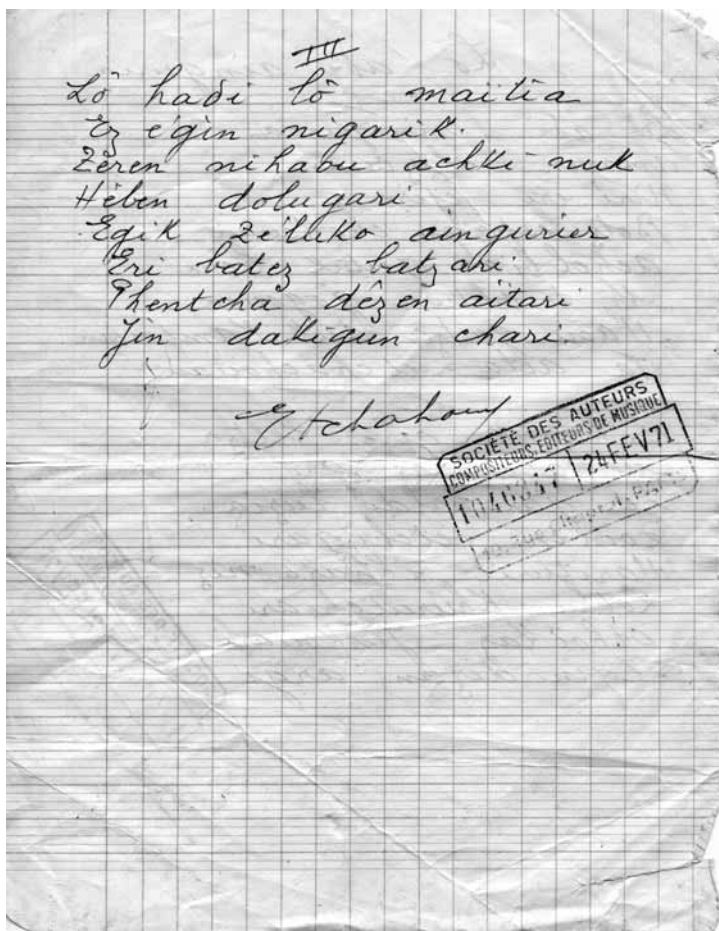 III
Lô hadi lô maitia
Ez égin nigarik.
Zéren nihaou achki nuk
Hében dolugari
Egik zéluko aingurier
Eri batez batzari
Phentcha dézen aitari
Jin dakigun chari.
Etchahoun
SOCIÉTÉ DES AUTEURS
COMPOSITEURS, EDITEURS DE MUSIQUE
24 FEV 71